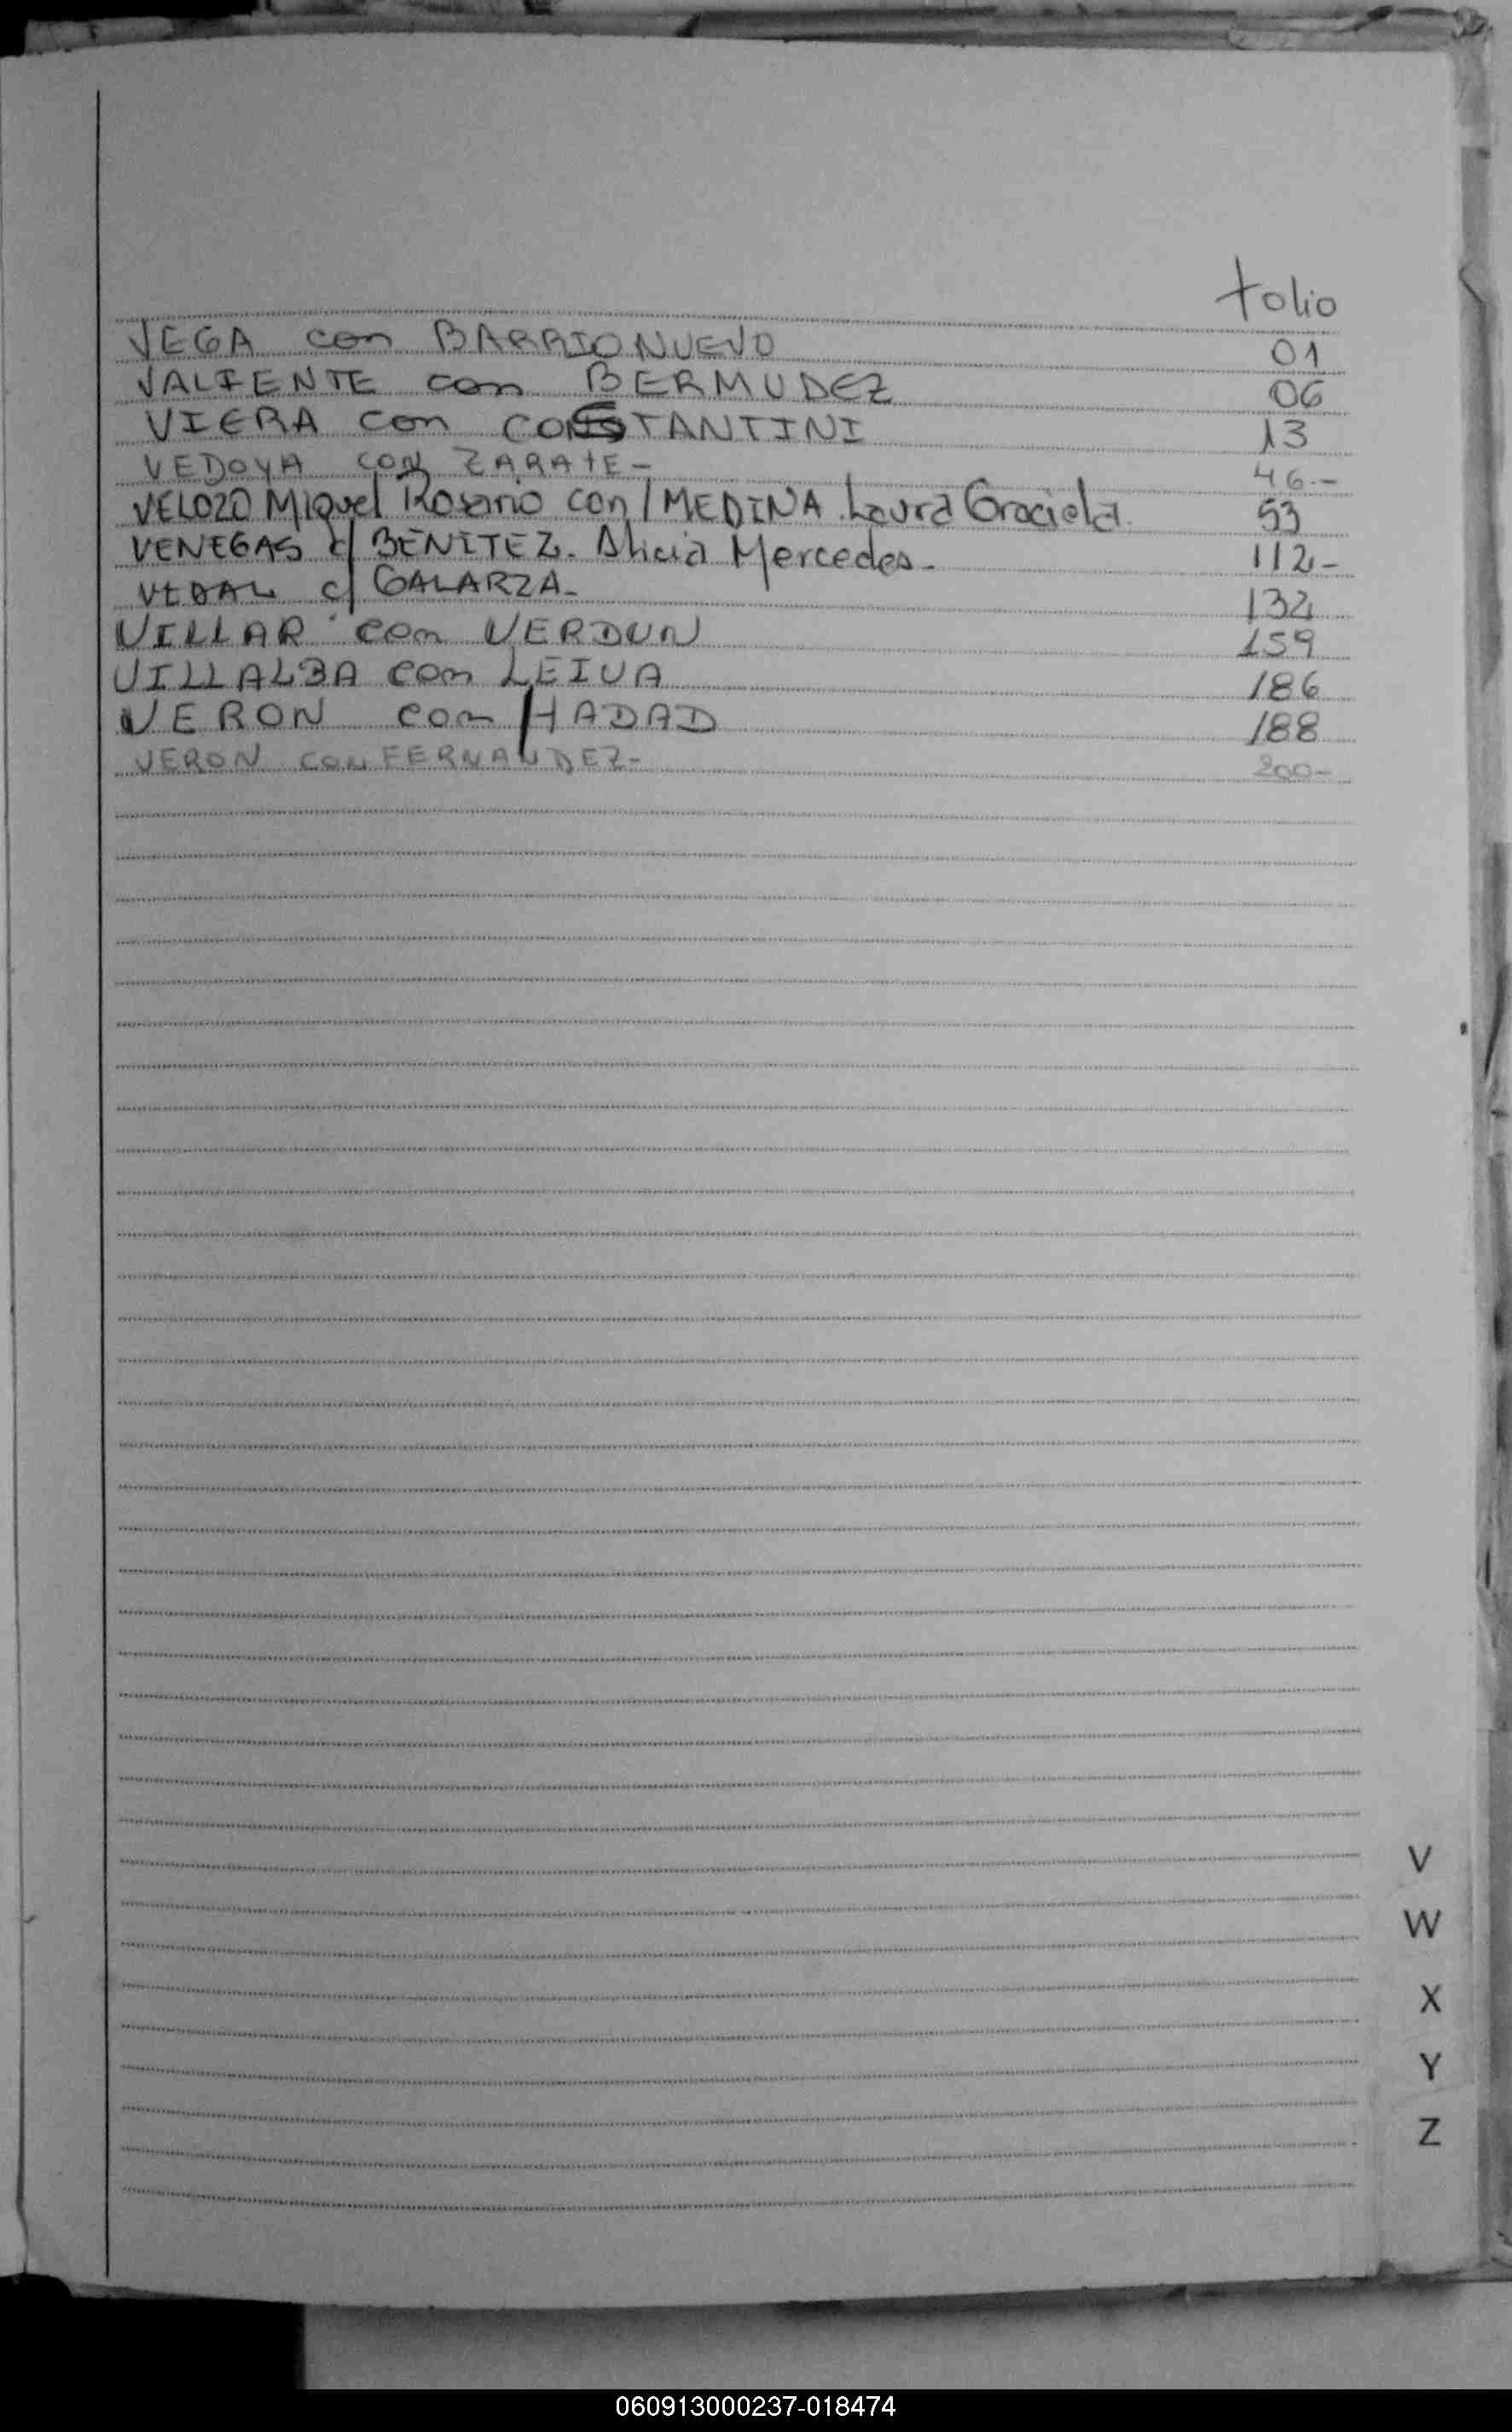 folio
VEGA con BARRIONUEVO 01
VALIENTE con BERMUDEZ 06
VIERA con CONSTANTINI 13
VEDOYA CON ZARATE- 46.-
VELOZO Miguel Rosario con/MEDINA Laura Graciela. 53
VENEGAS c/ BENITEZ. Alicia Mercedes.- 112-
VIDAL c/ GALARZA- 132
VILLAR con VERDUN 159
VILLALBA con LEIVA 186
VERON con HADAD 188
VERON CON FERNANDEZ- 200-
V
W
X
Y
Z
060913000237-018474